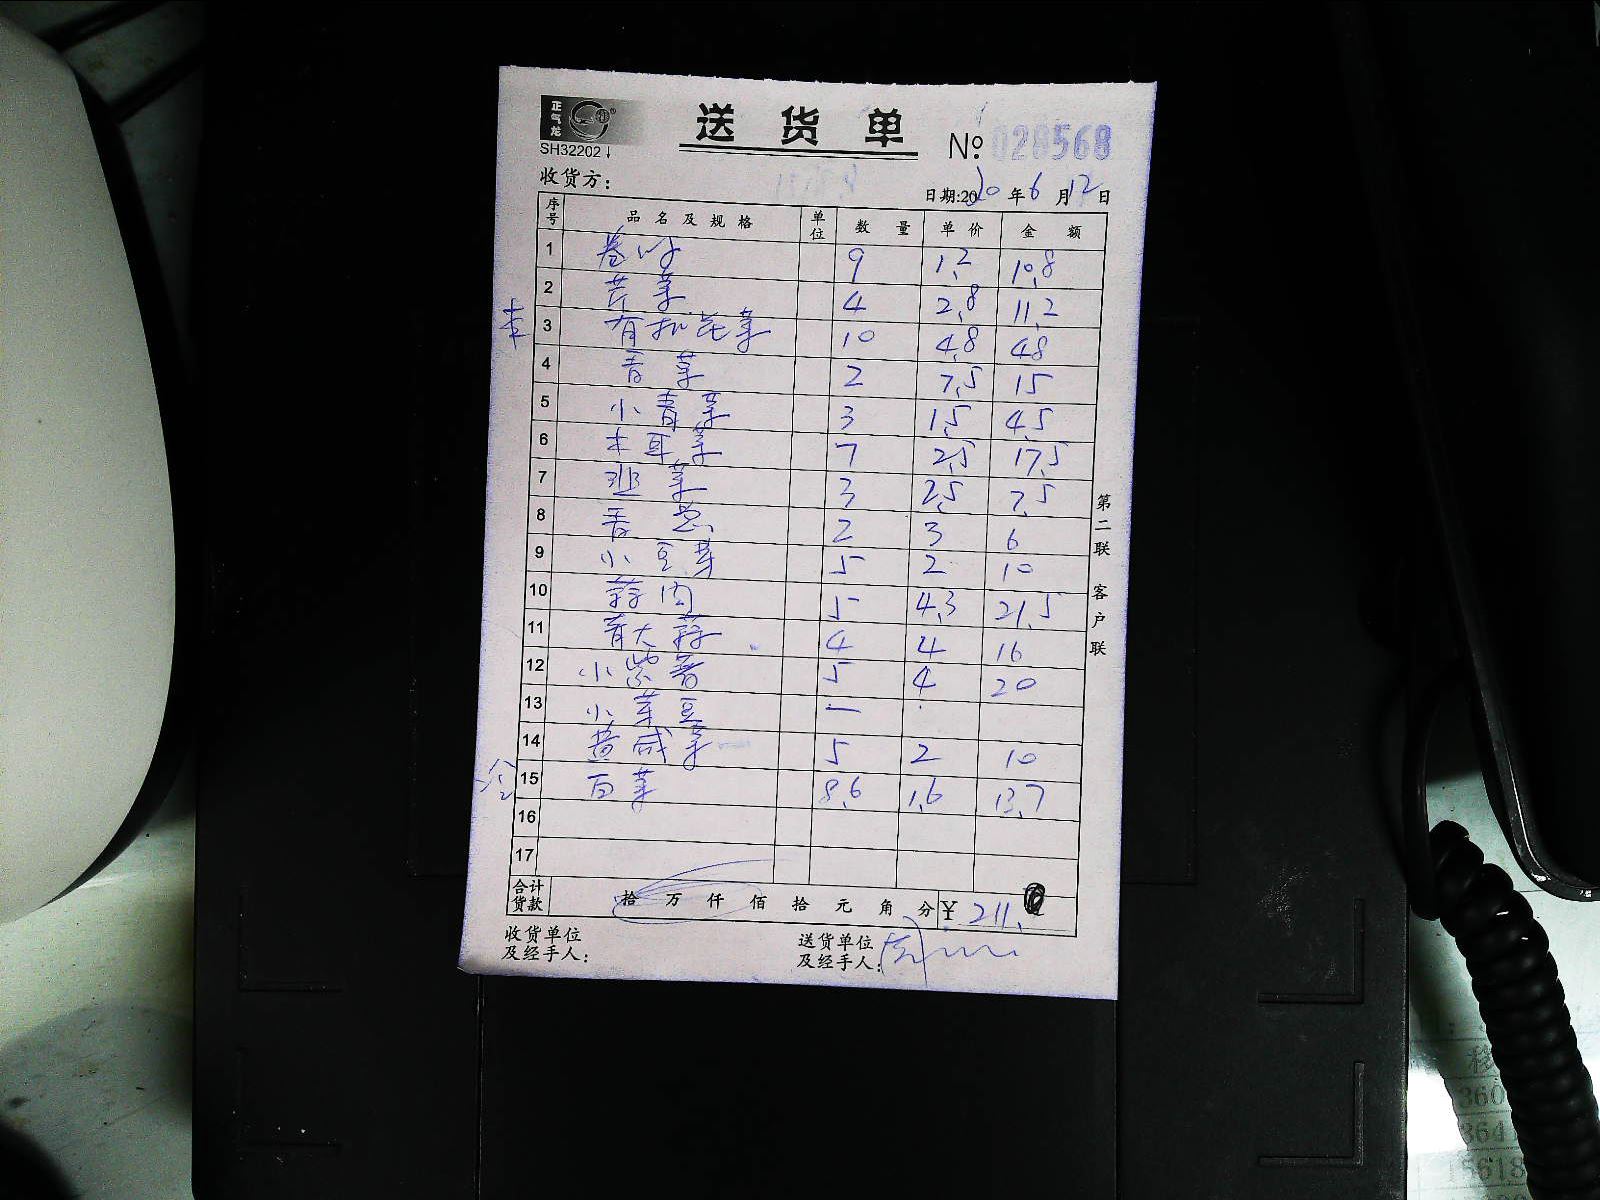 正气龙
SH32202
送货单
No. 028568
收货方:
日期:2020年6月12日
序号 品名及规格 单位 数量 单价 金额
1 卷心 9 1.2 10.8
2 芹菜 4 2.8 11.2
3 有机花菜 10 4.8 48
4 香菜 2 7.5 15
5 小青菜 3 1.5 4.5
6 木耳菜 7 2.5 17.5
7 韭菜 3 2.5 7.5
8 香葱 2 3 6
9 小豆芽 5 2 10
10 蒜肉 5 4.3 21.5
11 青大蒜 4 4 16
12 小紫薯 5 4 20
13 小芽豆 一
14 黄咸菜 5 2 10
15 白菜 8.6 1.6 13.7
16
17
合计货款 拾 万 仟 佰 拾 元 角 分 ¥ 211.
收货单位及经手人:
送货单位及经手人:
第二联 客户联
360
3641
15618